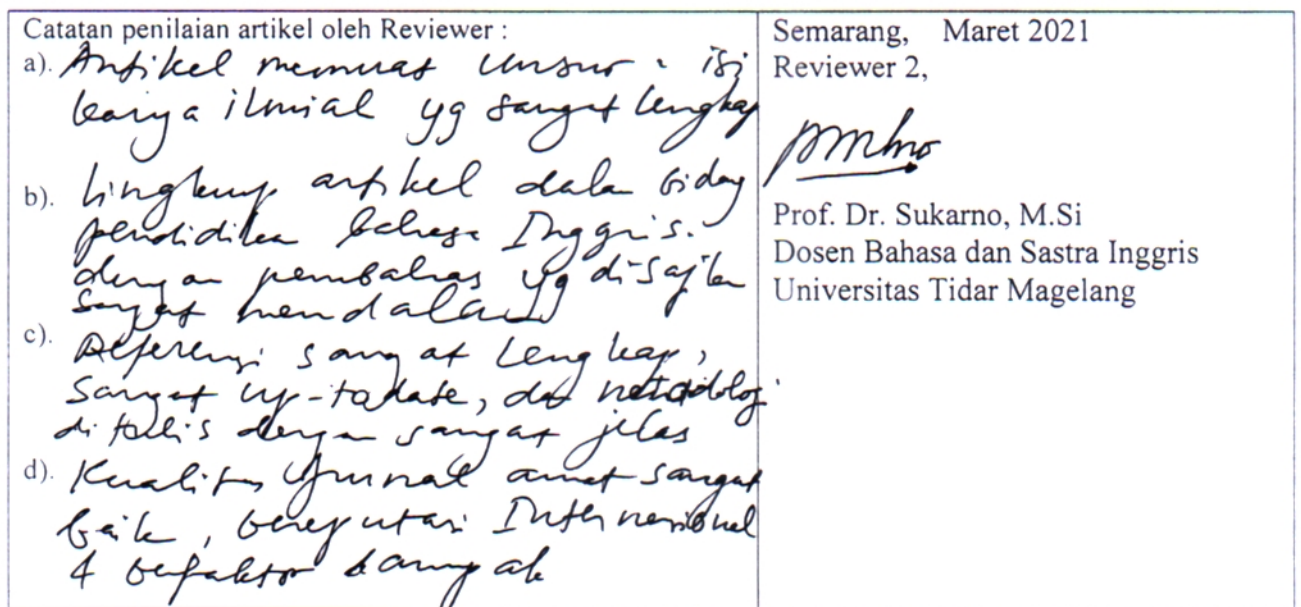 Catatan penilaian artikel oleh Reviewer :
a). Artikel memuat unsur - isi
karya ilmiah yg sangat lengkap
b). lingkup artikel dalam bidang
pendidikan bahasa Inggris.
dengan pembahas yg disajikan
sangat mendalam
c). Referensi sangat lengkap,
sangat up-todate, dan metodologi
ditulis dengan sangat jelas
d). Kualitas jurnal amat sangat
baik, bereputasi Internasional
& berfaktor
Semarang, Maret 2021
Reviewer 2,
Prof. Dr. Sukarno, M.Si
Dosen Bahasa dan Sastra Inggris
Universitas Tidar Magelang